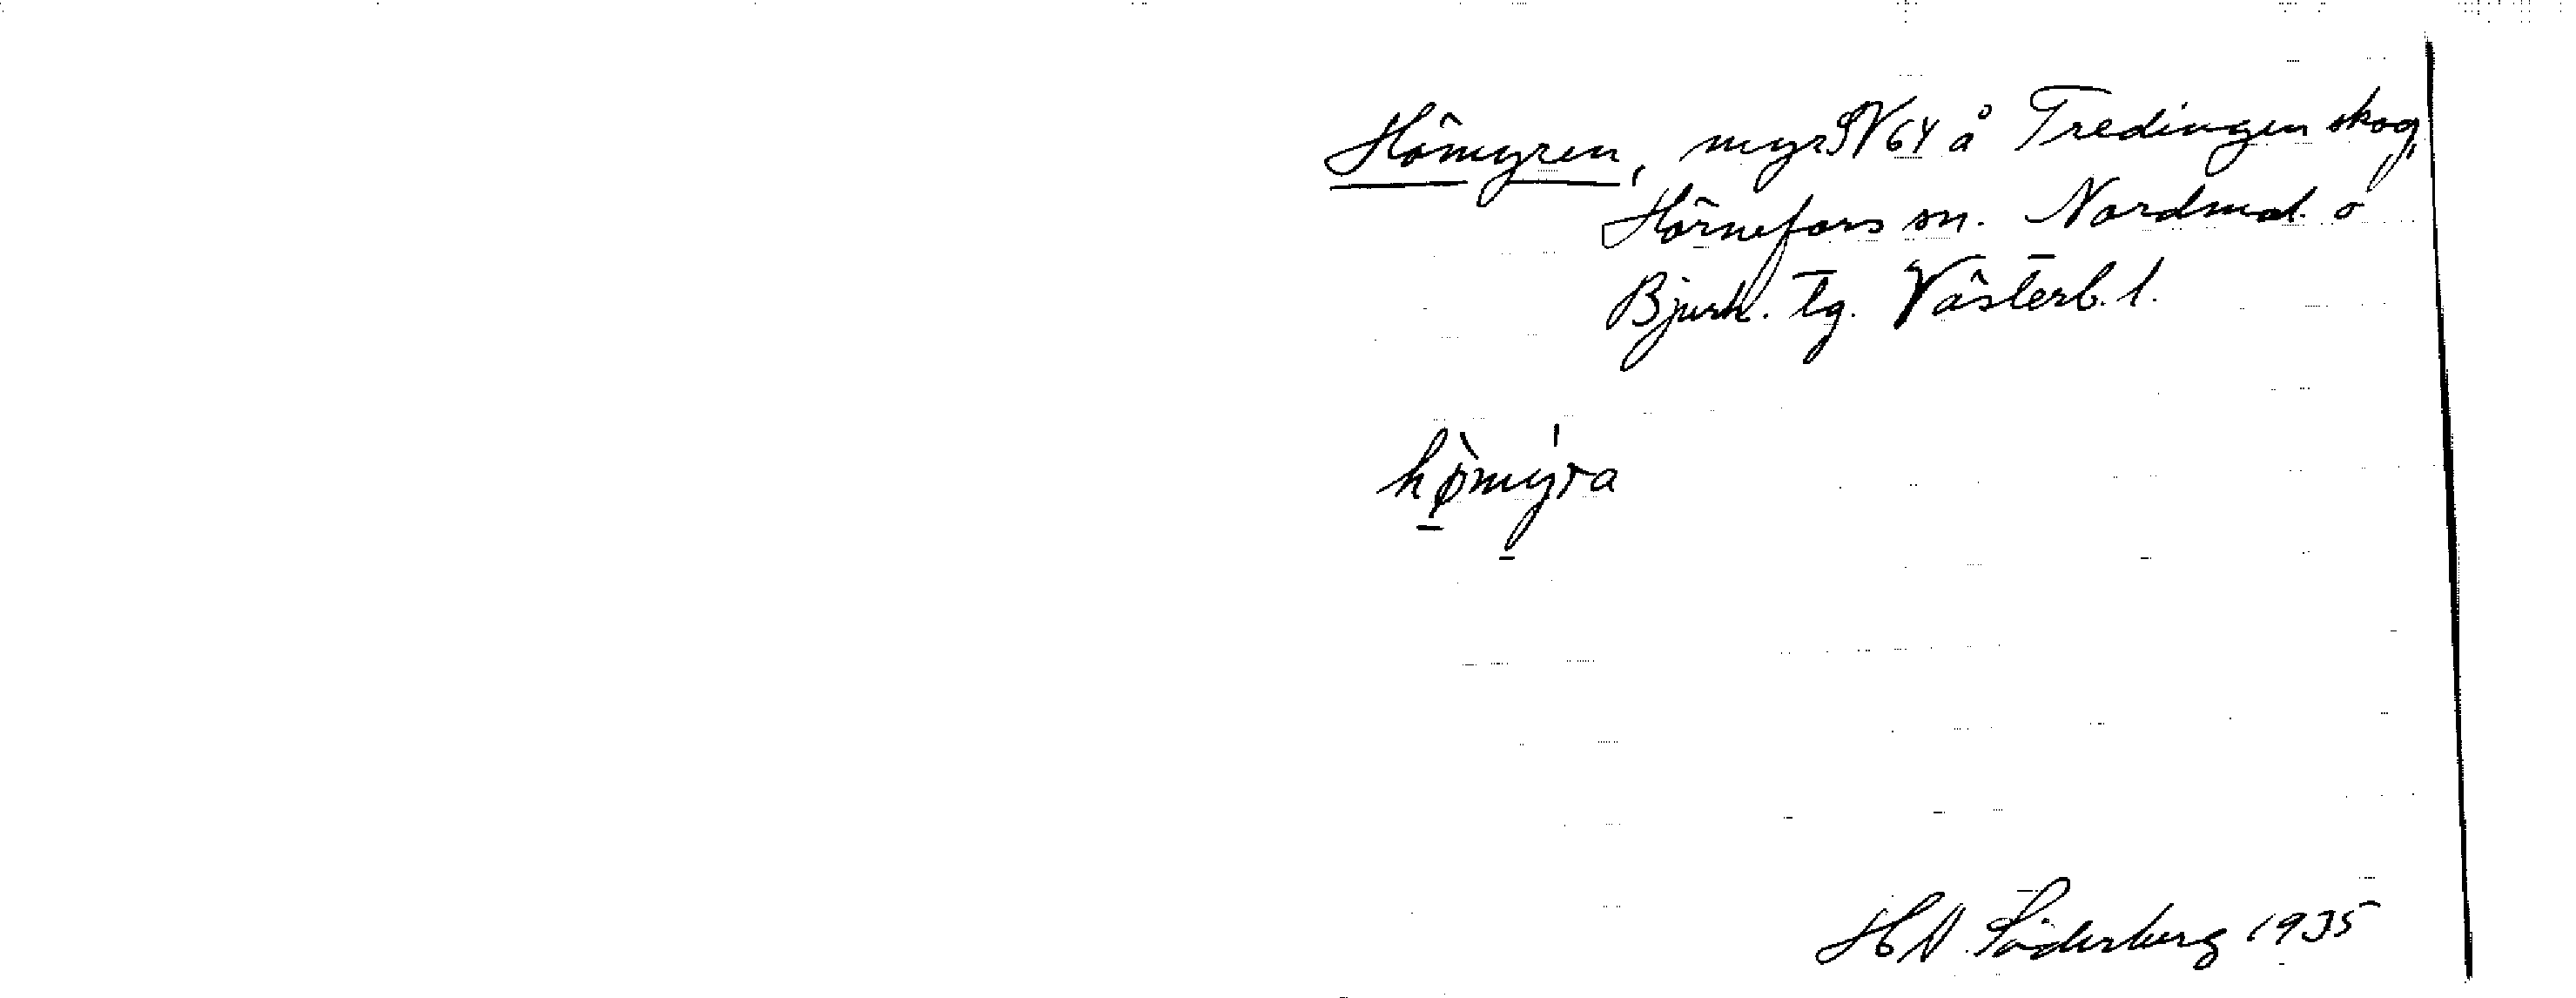 Hömyren, myr SV 64 å Tredingen skog,
Hörnefors sn. Nordmal. o
Bjurh. tg. Västerb. l.
hø̀mýra
H N Söderberg 1935